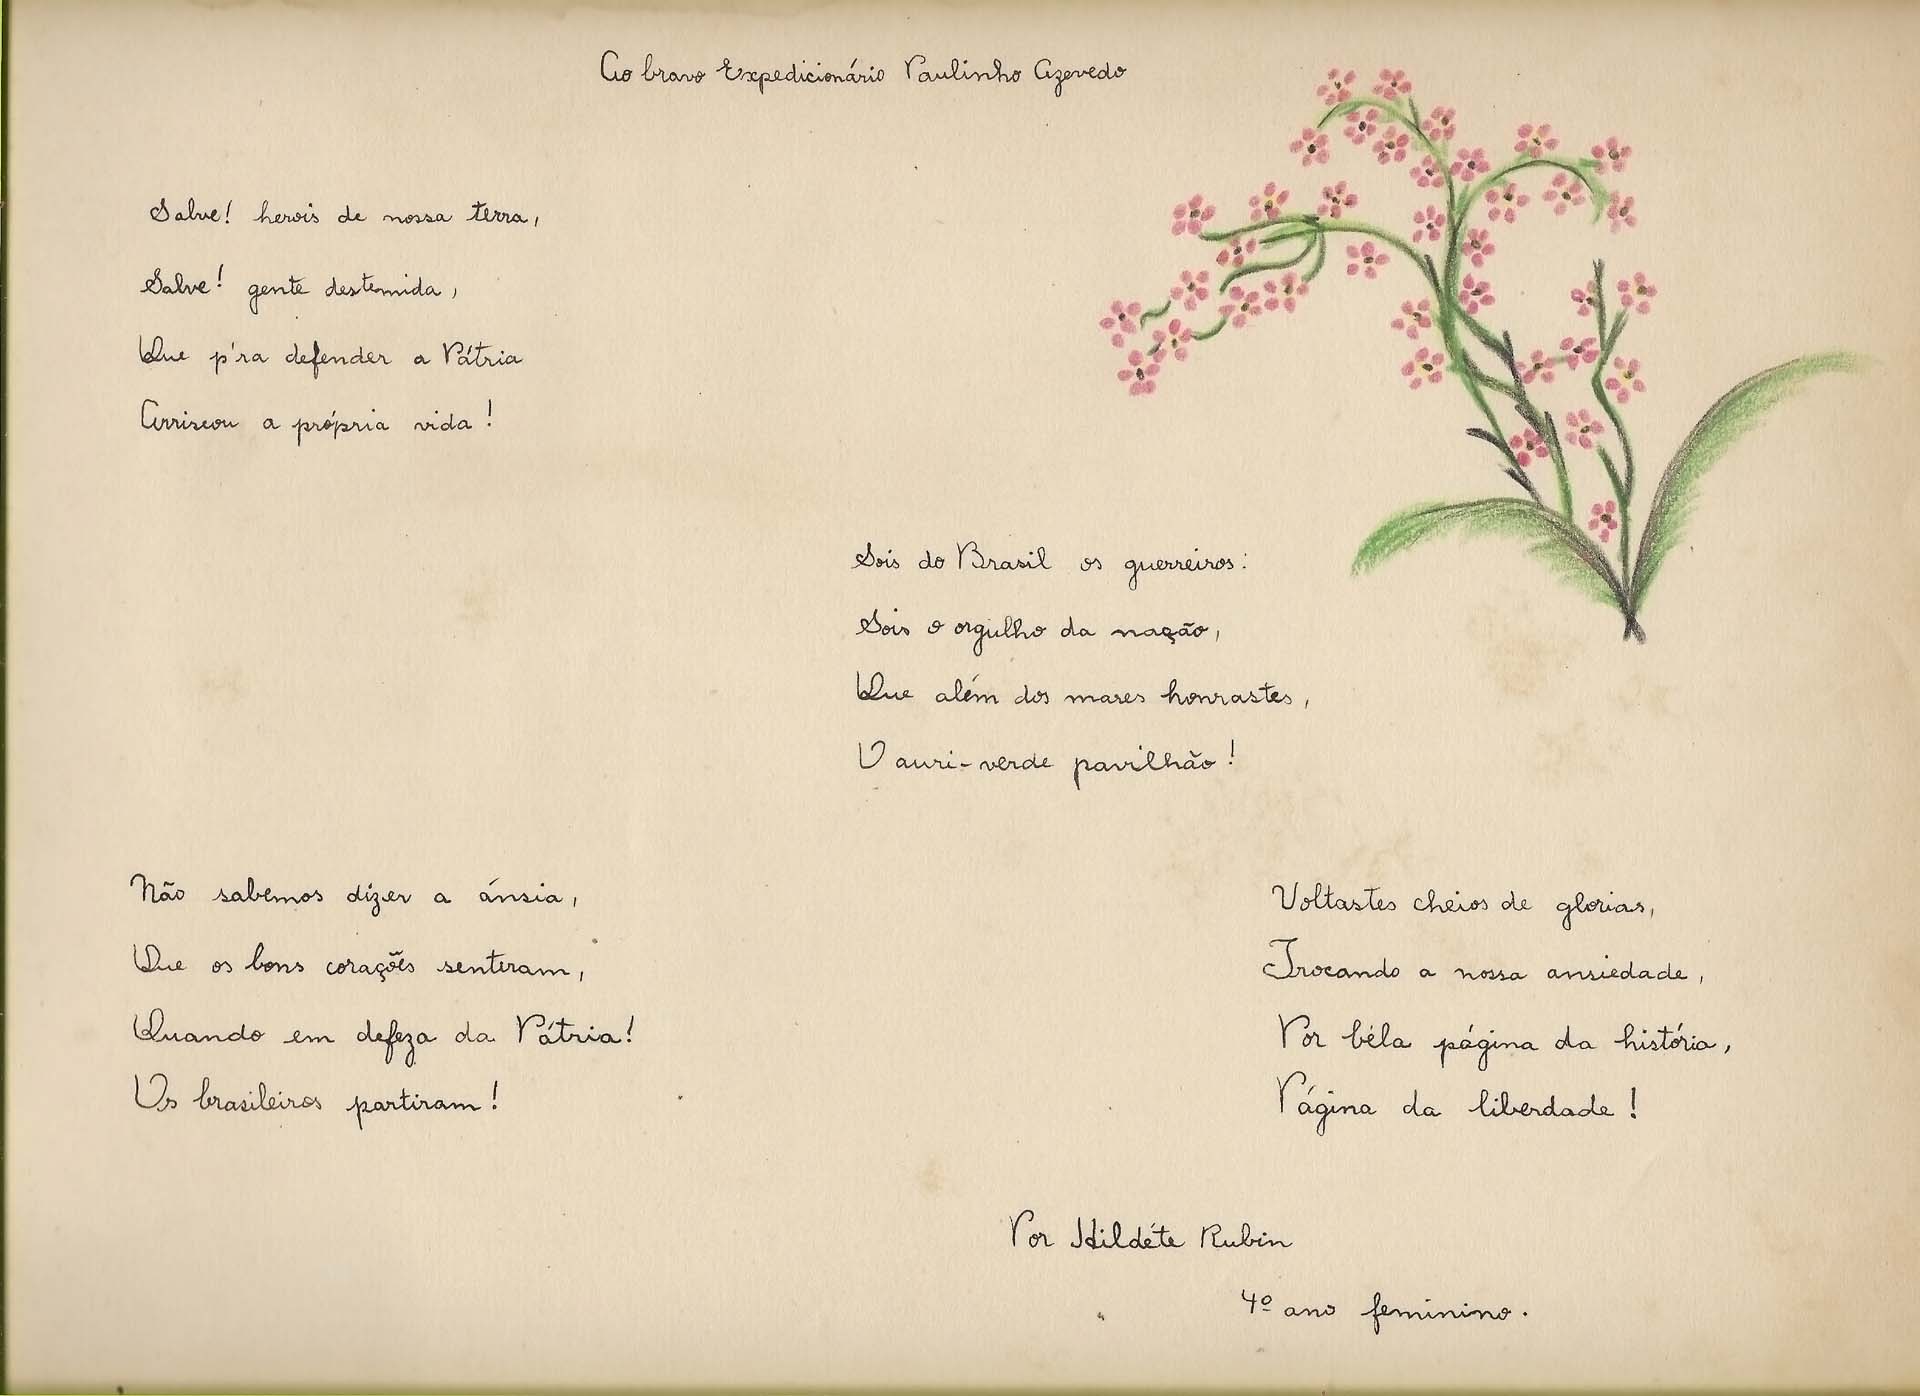 Ao bravo Expedicionário Paulinho Azevedo
Salve! herois de nossa terra,
Salve! gente destemida,
Que p'ra defender a Pátria
Arriscou a própria vida!
Sois do Brasil os guerreiros:
Sois o orgulho da nação,
Que além dos mares honrastes,
O auri-verde pavilhão!
Não sabemos dizer a ánsia,
Que os bons corações sentiram,
Quando em defeza da Pátria!
Os brasileiros partiram!
Voltastes cheios de glorias,
Trocando a nossa ansiedade,
Por béla página da história,
Página da liberdade!
Por Hildéte Rubin
4º ano feminino.